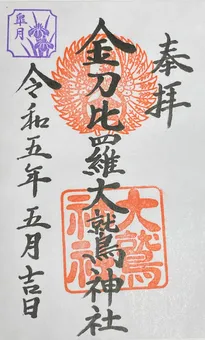 奉拝
金刀比羅大鷲神社
大鷲神社
令和五年五月吉日
皐月